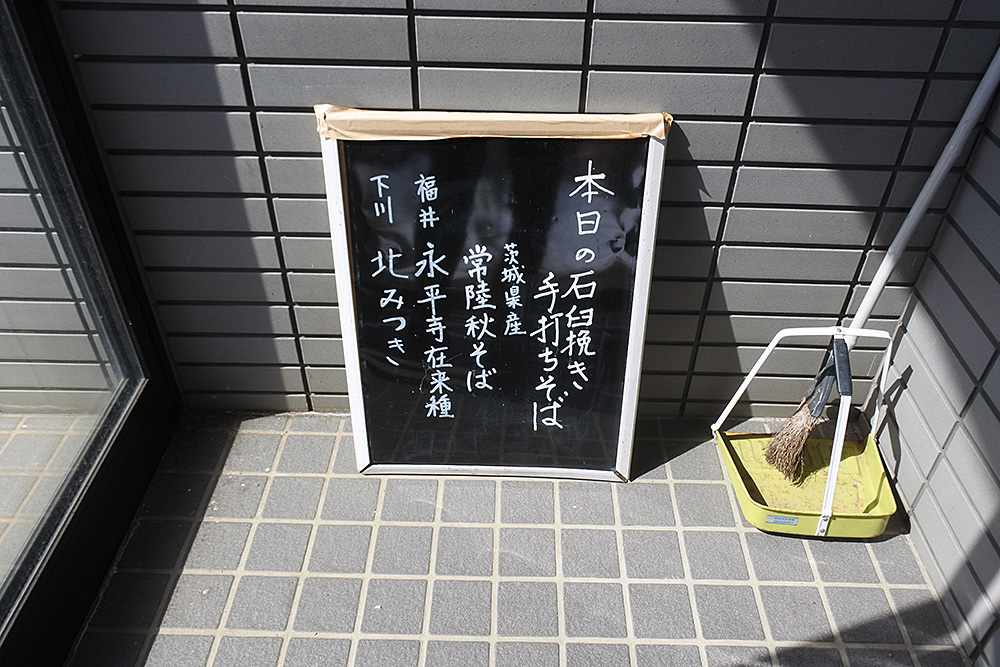 本日の石臼挽き
手打ちそば
茨城県産
常陸秋そば
福井 永平寺在来種
下川 北みつき